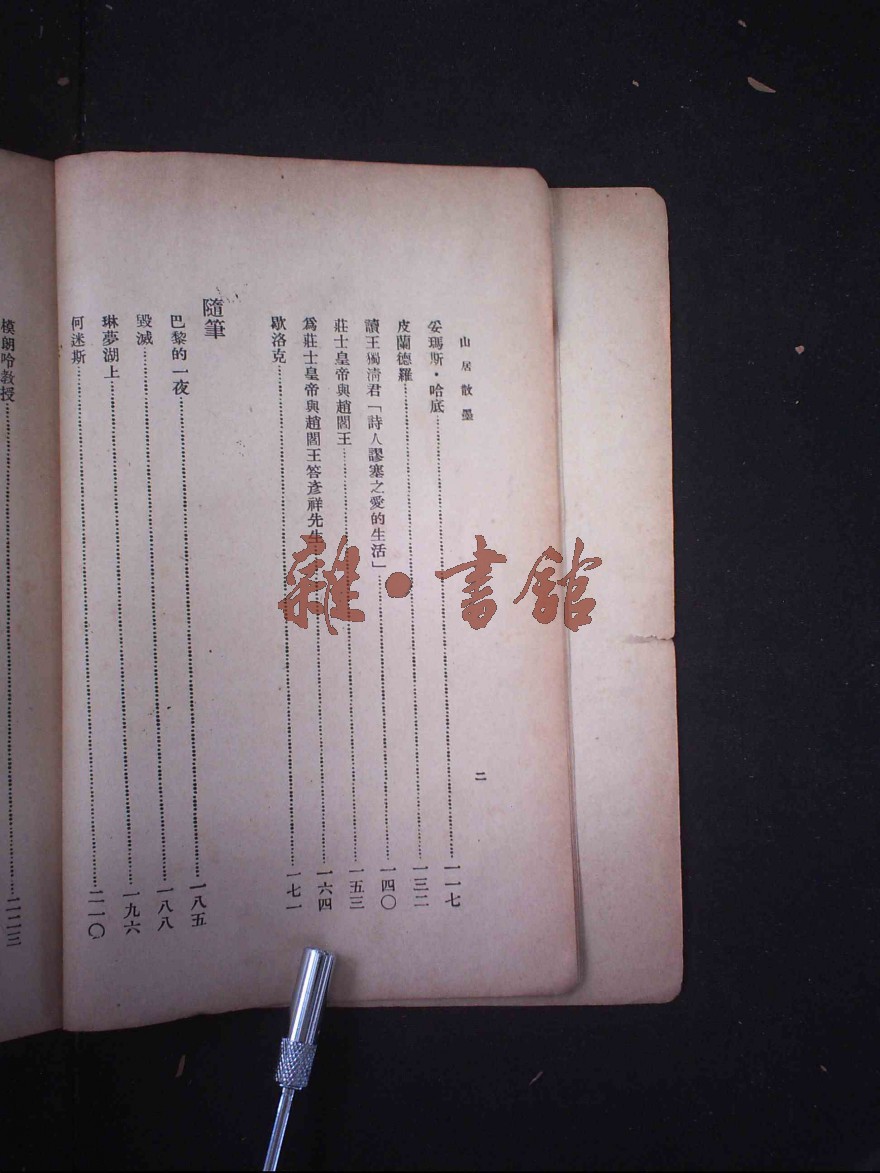 山居散墨
妥瑪斯・哈底……一一七
皮蘭德羅……一三二
讀王獨淸君「詩人謬塞之愛的生活」……一四〇
莊士皇帝與趙閻王……一五三
爲莊士皇帝與趙閻王答彥祥先生……一六四
歇洛克……一七一
隨筆
巴黎的一夜……一八五
毀滅……一八八
琳夢湖上……一九六
何迷斯……二一〇
二
模朗哈敎授……二二三
雜・書館